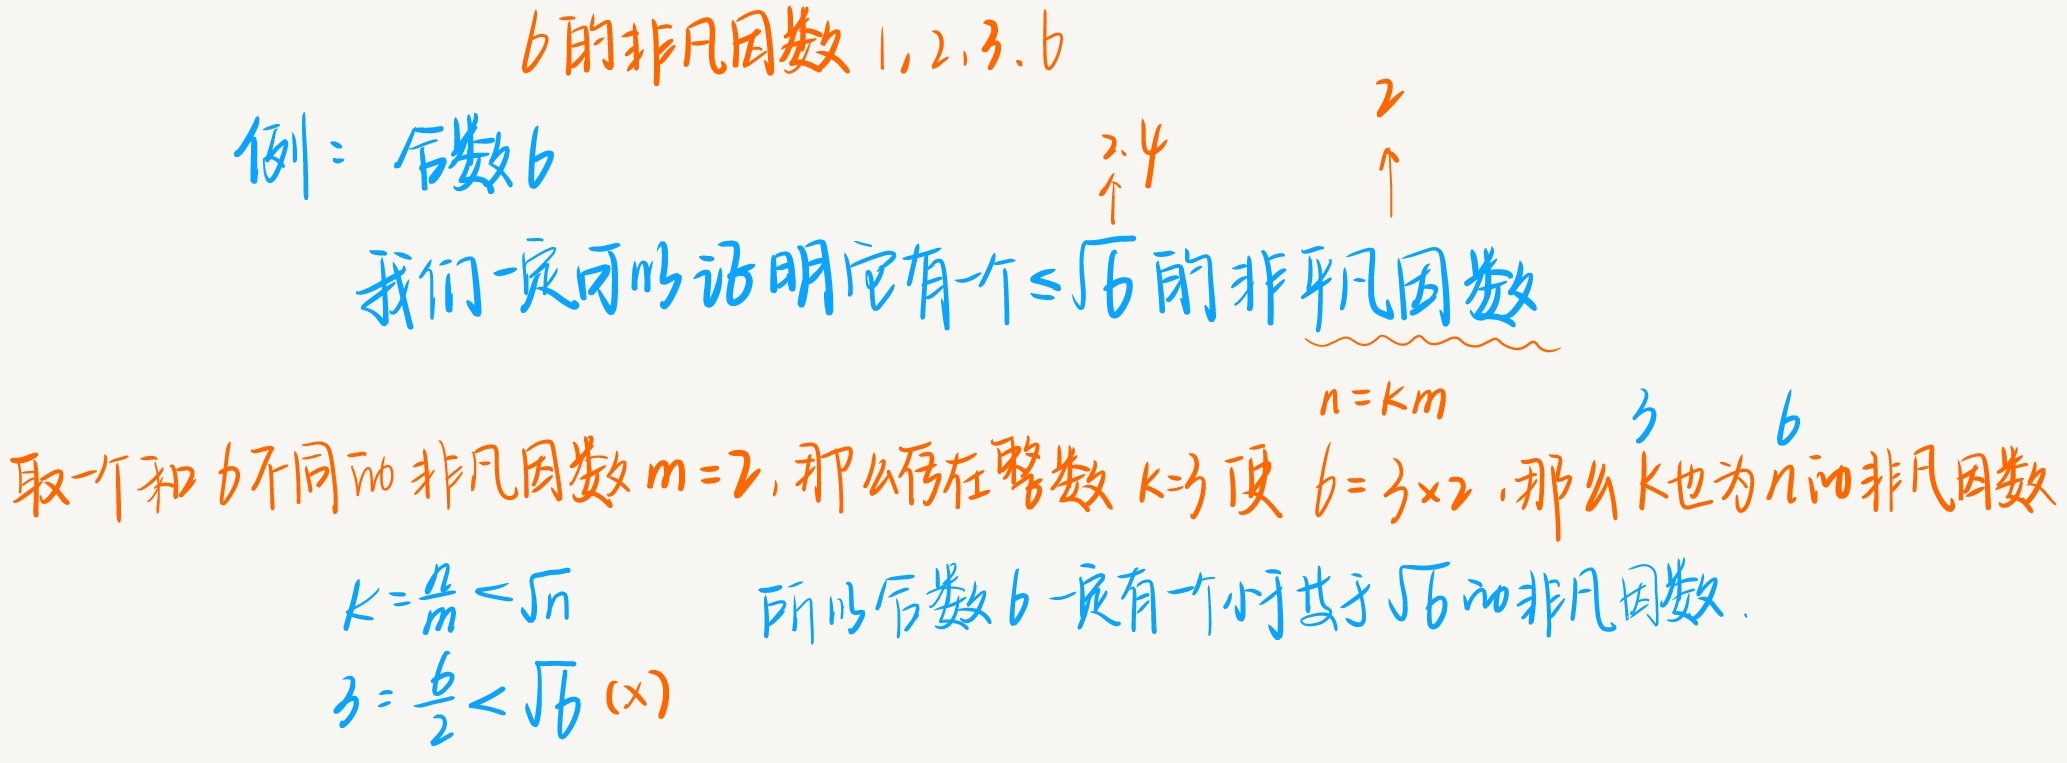 6的非凡因数 1,2,3.6
例：合数6
2.4
↑
2
↑
我们一定可以证明它有一个≤√6的非平凡因数
n=km
3 6
取一个和6不同的非凡因数m=2,那么存在整数k=3使 6=3×2,那么k也为n的非凡因数
k=n/m<√n
所以合数6一定有一个小于等于√6的非凡因数.
3=6/2<√6(×)